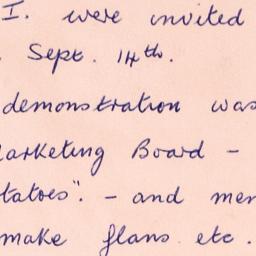 I. were invited
Sept. 14th.
demonstration was
arketing Board -
tatoes". - and mem
make flans etc.